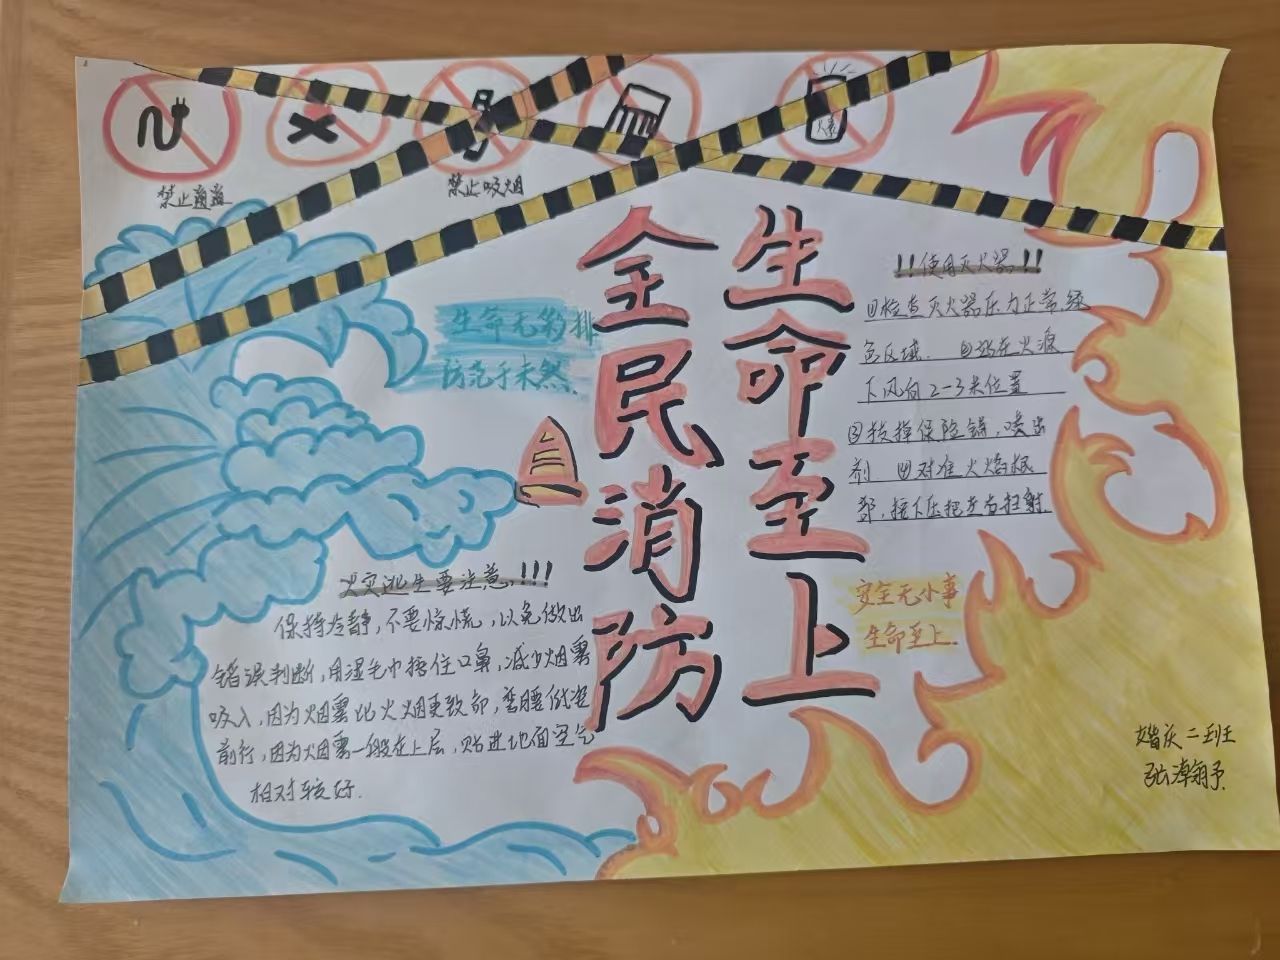 火表
禁止
禁止吸烟
全民消防
生命至上
!!使用灭火器!!
①检查灭火器压力正常,绿
色区域. ②站在火源
下风向2-3米位置
③拔掉保险销,喷出
剂 ④对准火焰根
部,按下压把左右扫射.
生命无彩排
防范于未然
火灾逃生要注意,!!!
保持冷静,不要惊慌,以免做出
错误判断,用湿毛巾捂住口鼻,减少烟雾
吸入,因为烟雾比火烟更致命,弯腰低姿
前行,因为烟雾一般在上层,贴进地面空气
相对较好.
安全无小事
生命至上.
婚庆二班
张瀚予